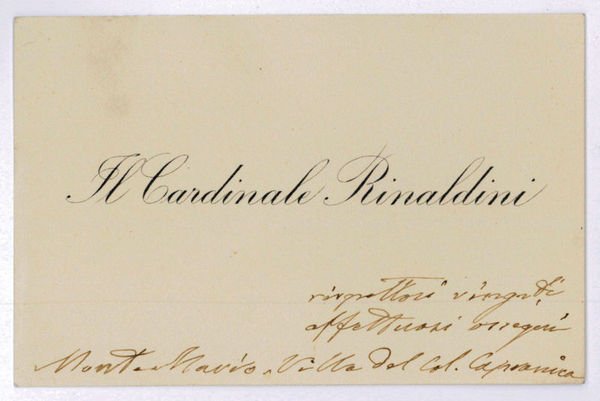 Il Cardinale Rinaldini
rispettosi ringr.ti
affettuosi ossequi
Monte Mario, Villa del Col. Capranica